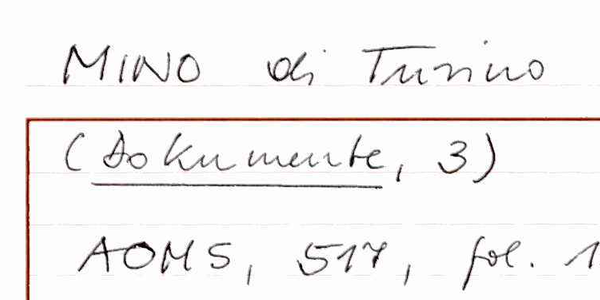 MINO di Turino
(Dokumente, 3)
AOMS, 517, fol. 1